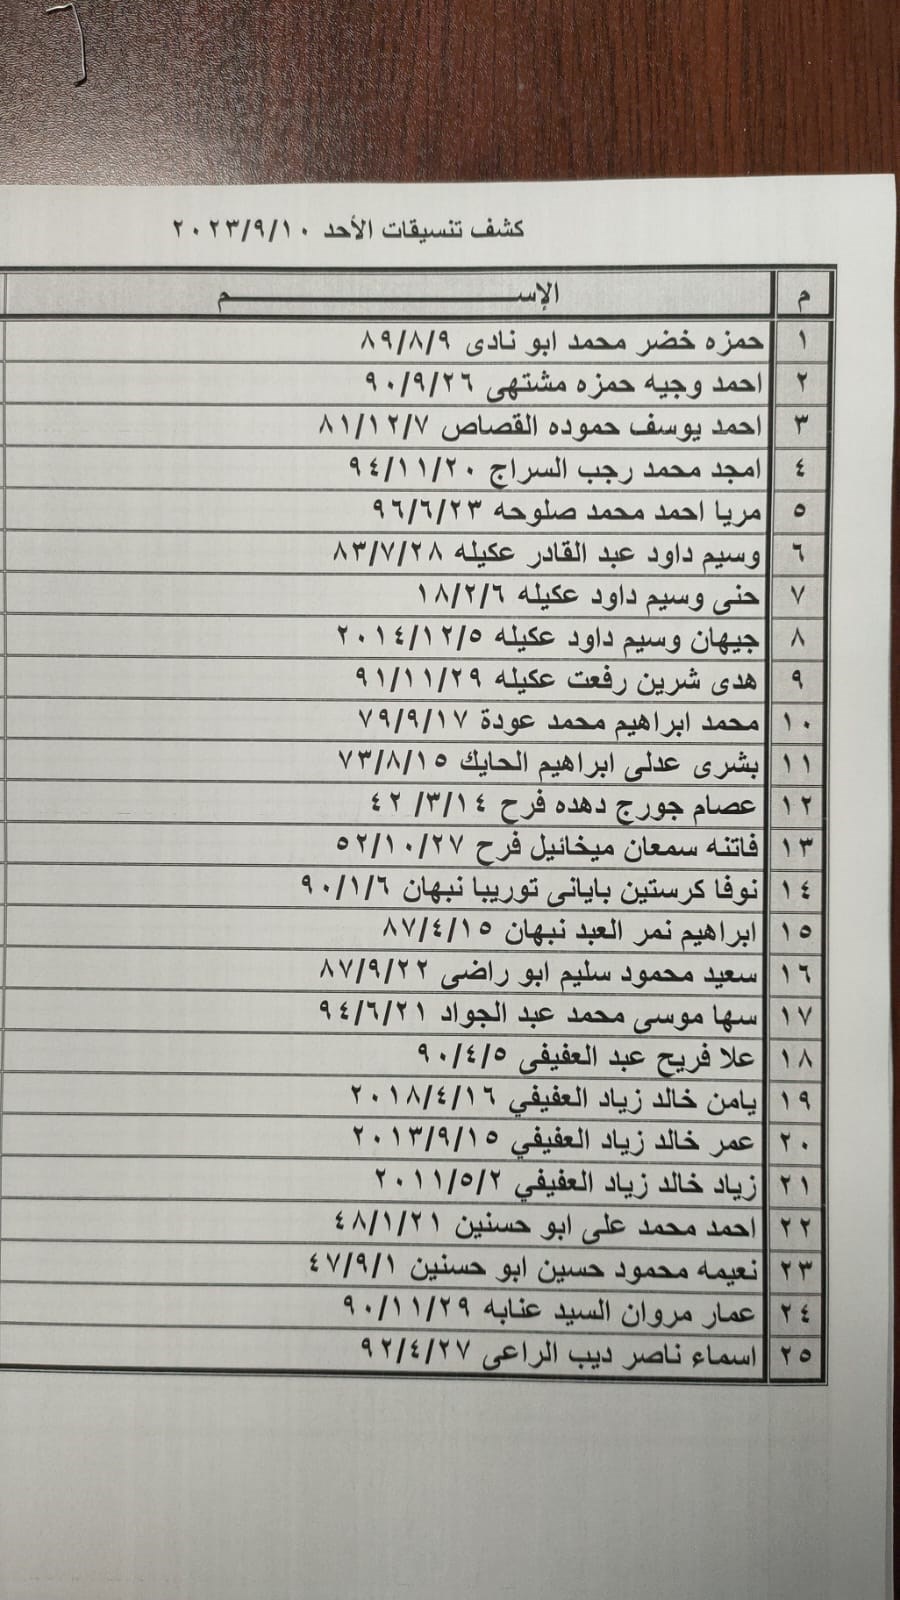 كشف تنسيقات الأحد ٢٠٢٣/٩/١٠
م الإســـــــم
١ حمزه خضر محمد ابو نادى ٨٩/٨/٩
٢ احمد وجيه حمزه مشتهى ٩٠/٩/٢٦
٣ احمد يوسف حموده القصاص ٨١/١٢/٧
٤ امجد محمد رجب السراج ٩٤/١١/٢٠
٥ مريا احمد محمد صلوحه ٩٦/٦/٢٣
٦ وسيم داود عبد القادر عكيله ٨٣/٧/٢٨
٧ حنى وسيم داود عكيله ١٨/٢/٦
٨ جيهان وسيم داود عكيله ٢٠١٤/١٢/٥
٩ هدى شرين رفعت عكيله ٩١/١١/٢٩
١٠ محمد ابراهيم محمد عودة ٧٩/٩/١٧
١١ بشرى عدلى ابراهيم الحايك ٧٣/٨/١٥
١٢ عصام جورج دهده فرح ٤٢ /٣/١٤
١٣ فاتنه سمعان ميخائيل فرح ٥٢/١٠/٢٧
١٤ نوفا كرستين باياني توريبا نبهان ٩٠/١/٦
١٥ ابراهيم نمر العبد نبهان ٨٧/٤/١٥
١٦ سعيد محمود سليم ابو راضى ٨٧/٩/٢٢
١٧ سها موسى محمد عبد الجواد ٩٤/٦/٢١
١٨ علا فريح عبد العفيفى ٩٠/٤/٥
١٩ يامن خالد زياد العفيفي ٢٠١٨/٤/١٦
٢٠ عمر خالد زياد العفيفي ٢٠١٣/٩/١٥
٢١ زياد خالد زياد العفيفي ٢٠١١/٥/٢
٢٢ احمد محمد على ابو حسنين ٤٨/١/٢١
٢٣ نعيمه محمود حسين ابو حسنين ٤٧/٩/١
٢٤ عمار مروان السيد عنابه ٩٠/١١/٢٩
٢٥ اسماء ناصر ديب الراعى ٩٢/٤/٢٧